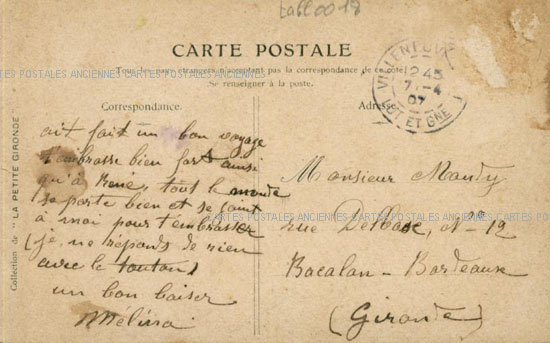 tabl0018
CARTE POSTALE
Tous les pays étrangers n'acceptent pas la correspondance de ce côté
Se renseigner à la poste.
CARTES POSTALES ANCIENNES CARTES POSTALES ANCIENNES CARTES POSTALES ANCIENNES
Correspondance.
ait fait un bon voyage
t'embrasse bien fort ainsi
qu'à René, tout le monde
se porte bien et se joint
à moi pour t'embrasser
(je ne réponds de rien
avec le toutou)
un bon baiser
Mélina
Collection de "LA PETITE GIRONDE"
VILLENEUVE
12 45
7-4
07
LOT ET GNE
Adresse
Monsieur Maudy
rue Delbos, N° 12
Bacalan-Bordeaux
(Gironde)